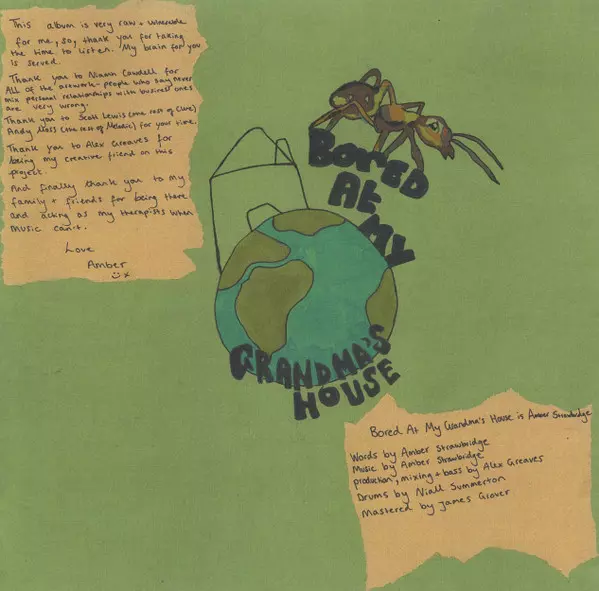 This album is very raw + vulnerable
for me, so, thank you for taking
the time to listen. My brain for you
is served.
Thank you to Niamh Cowdell for
ALL of the artwork - people who say never
mix personal relationships with business ones
are very wrong.
Thank you to Scott Lewis (+the rest of Clue)
Andy Moss (+the rest of Melodic) for your time.
Thank you to Alex Greaves for
being my creative friend on this
project.
And finally thank you to my
family + friends for being there
and acting as my therapists when
music can't.
Love
Amber
BORED
At
MY
GRANDMA'S
HOUSE
Bored At My Grandma's House is Amber Strawbridge
Words by Amber Strawbridge
Music by Amber Strawbridge
production, mixing + bass by Alex Greaves
Drums by Niall Summerton
Mastered by James Grover